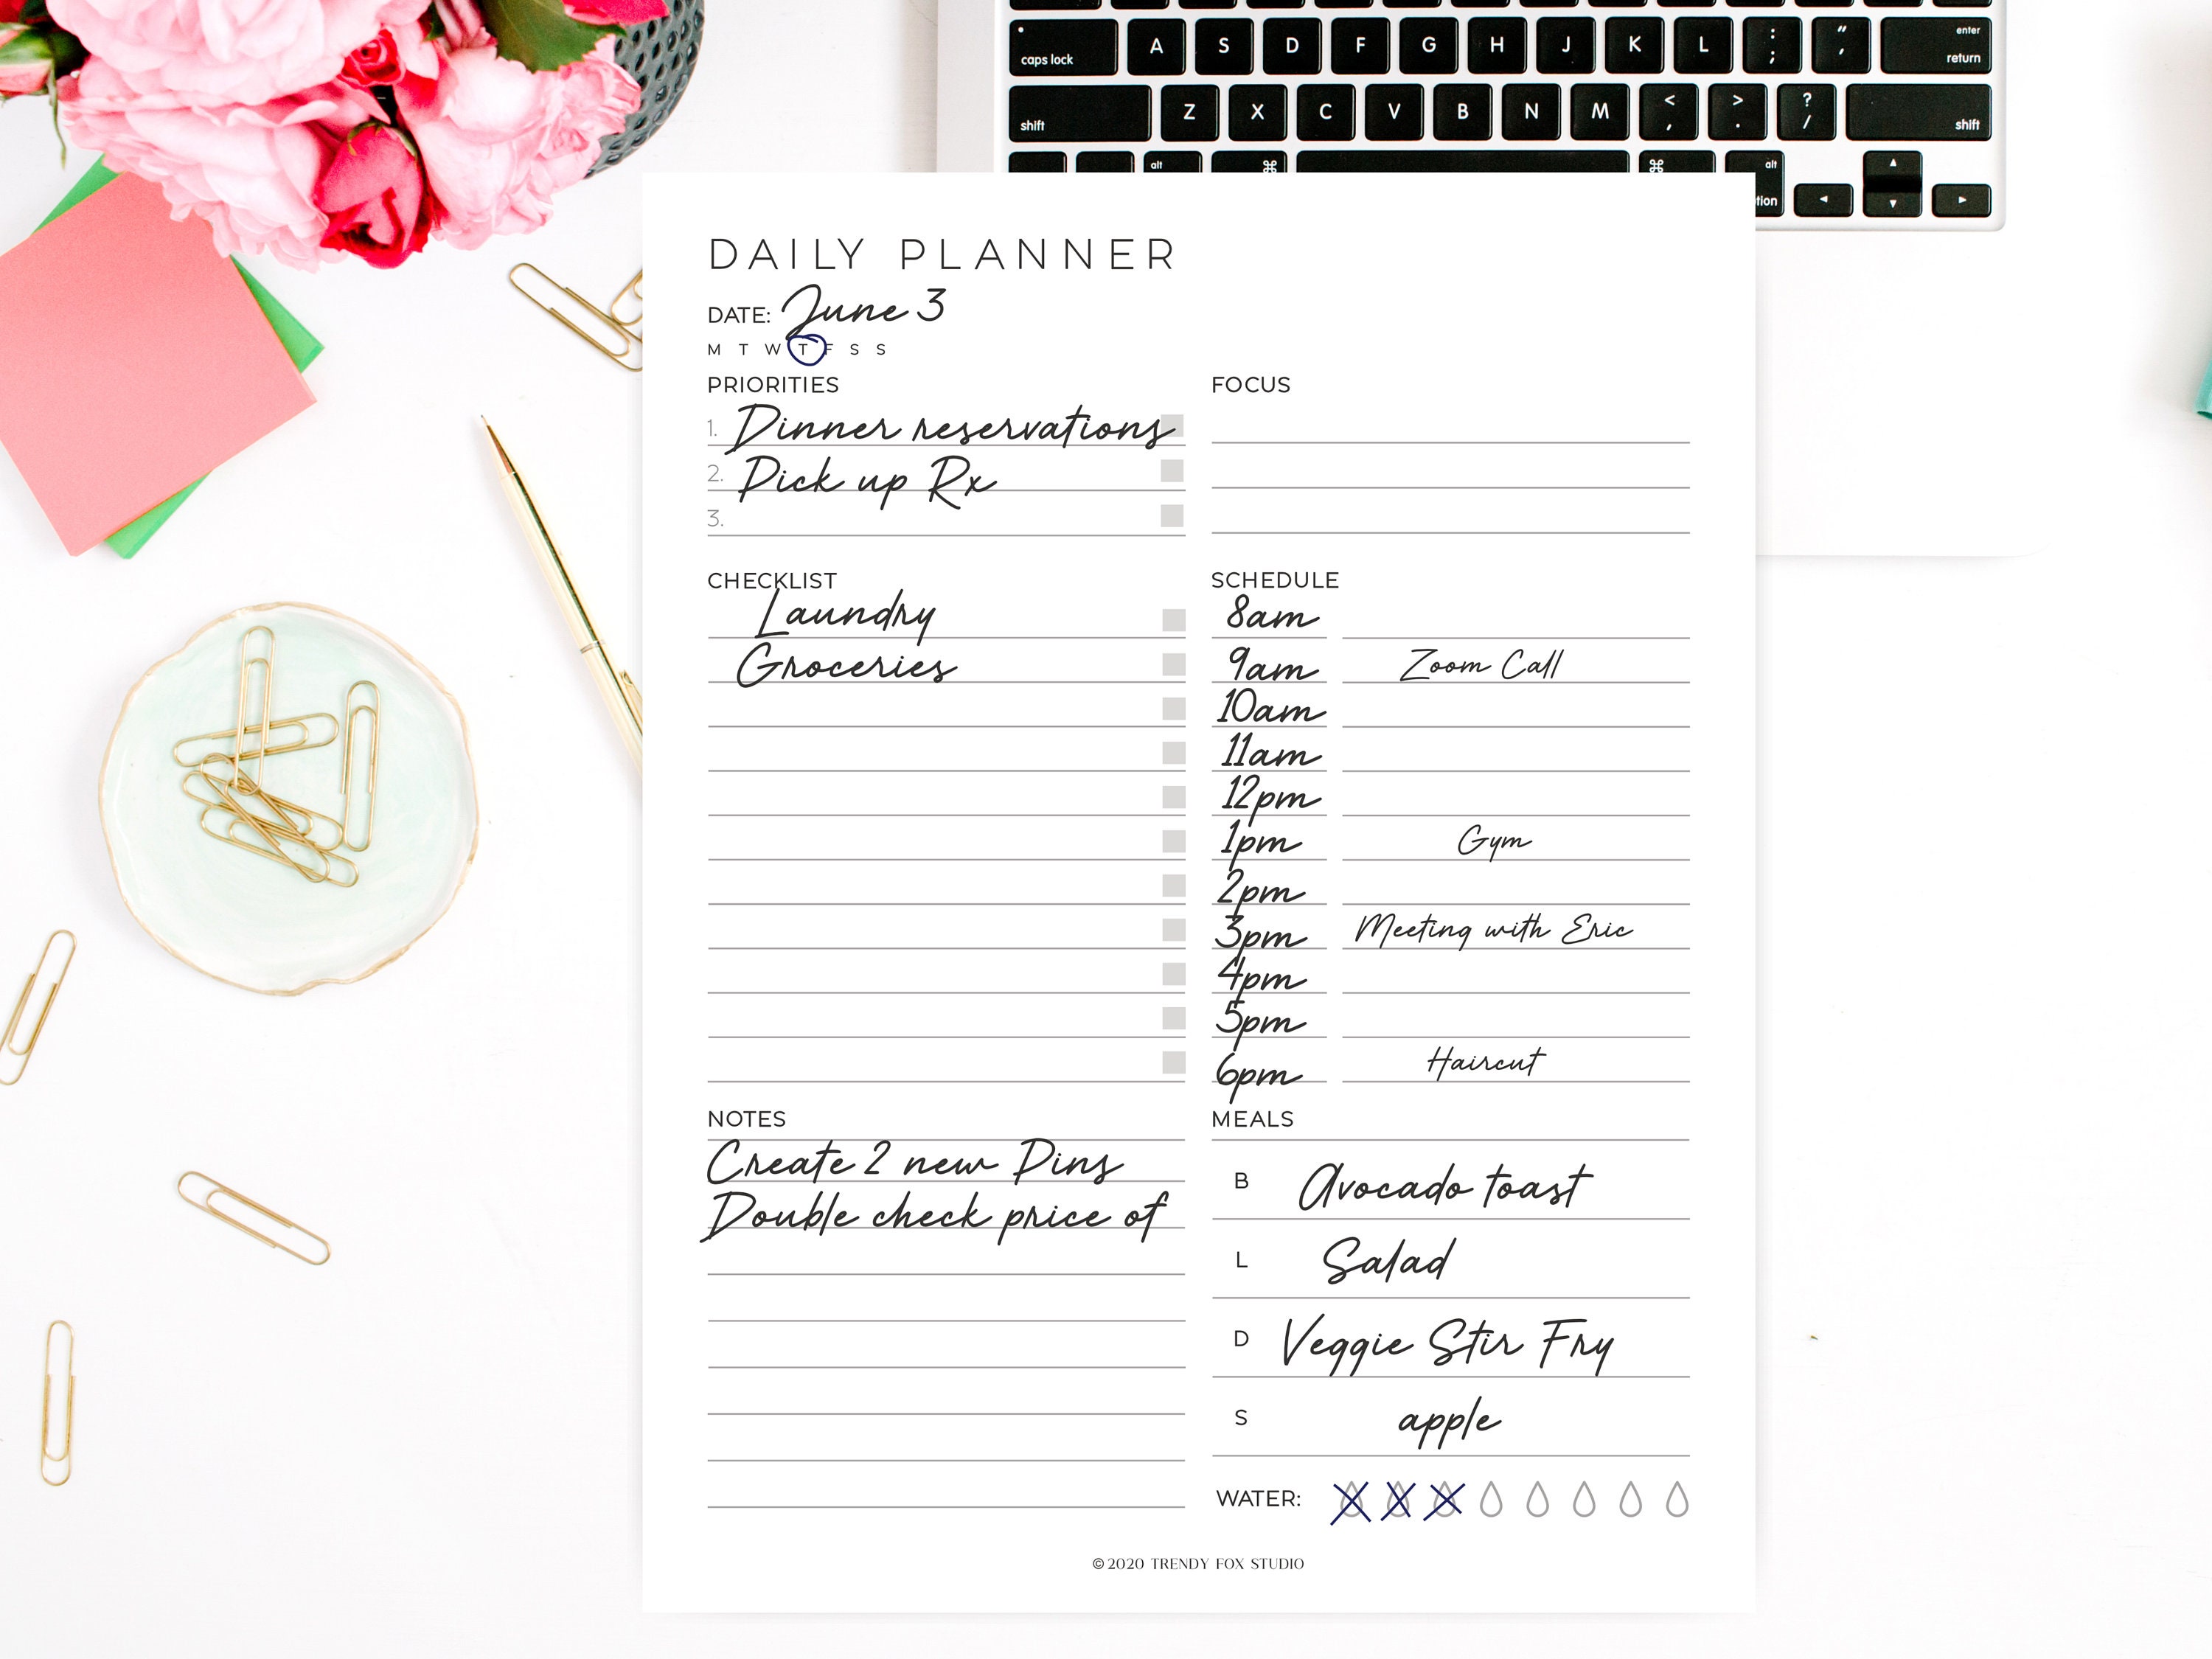 caps lock A S D F G H J K L : ; " ' enter return
shift Z X C V B N M < , > . ? / shift
alt ⌘ ⌘ alt
tion
DAILY PLANNER
DATE: June 3
M T W T F S S
PRIORITIES
1. Dinner reservations
2. Pick up Rx
3.
FOCUS
CHECKLIST
Laundry
Groceries
SCHEDULE
8am
9am Zoom Call
10am
11am
12pm
1pm Gym
2pm
3pm Meeting with Eric
4pm
5pm
6pm Haircut
NOTES
Create 2 new Pins
Double check price of
MEALS
B Avocado toast
L Salad
D Veggie Stir Fry
S apple
WATER:
©2020 TRENDY FOX STUDIO